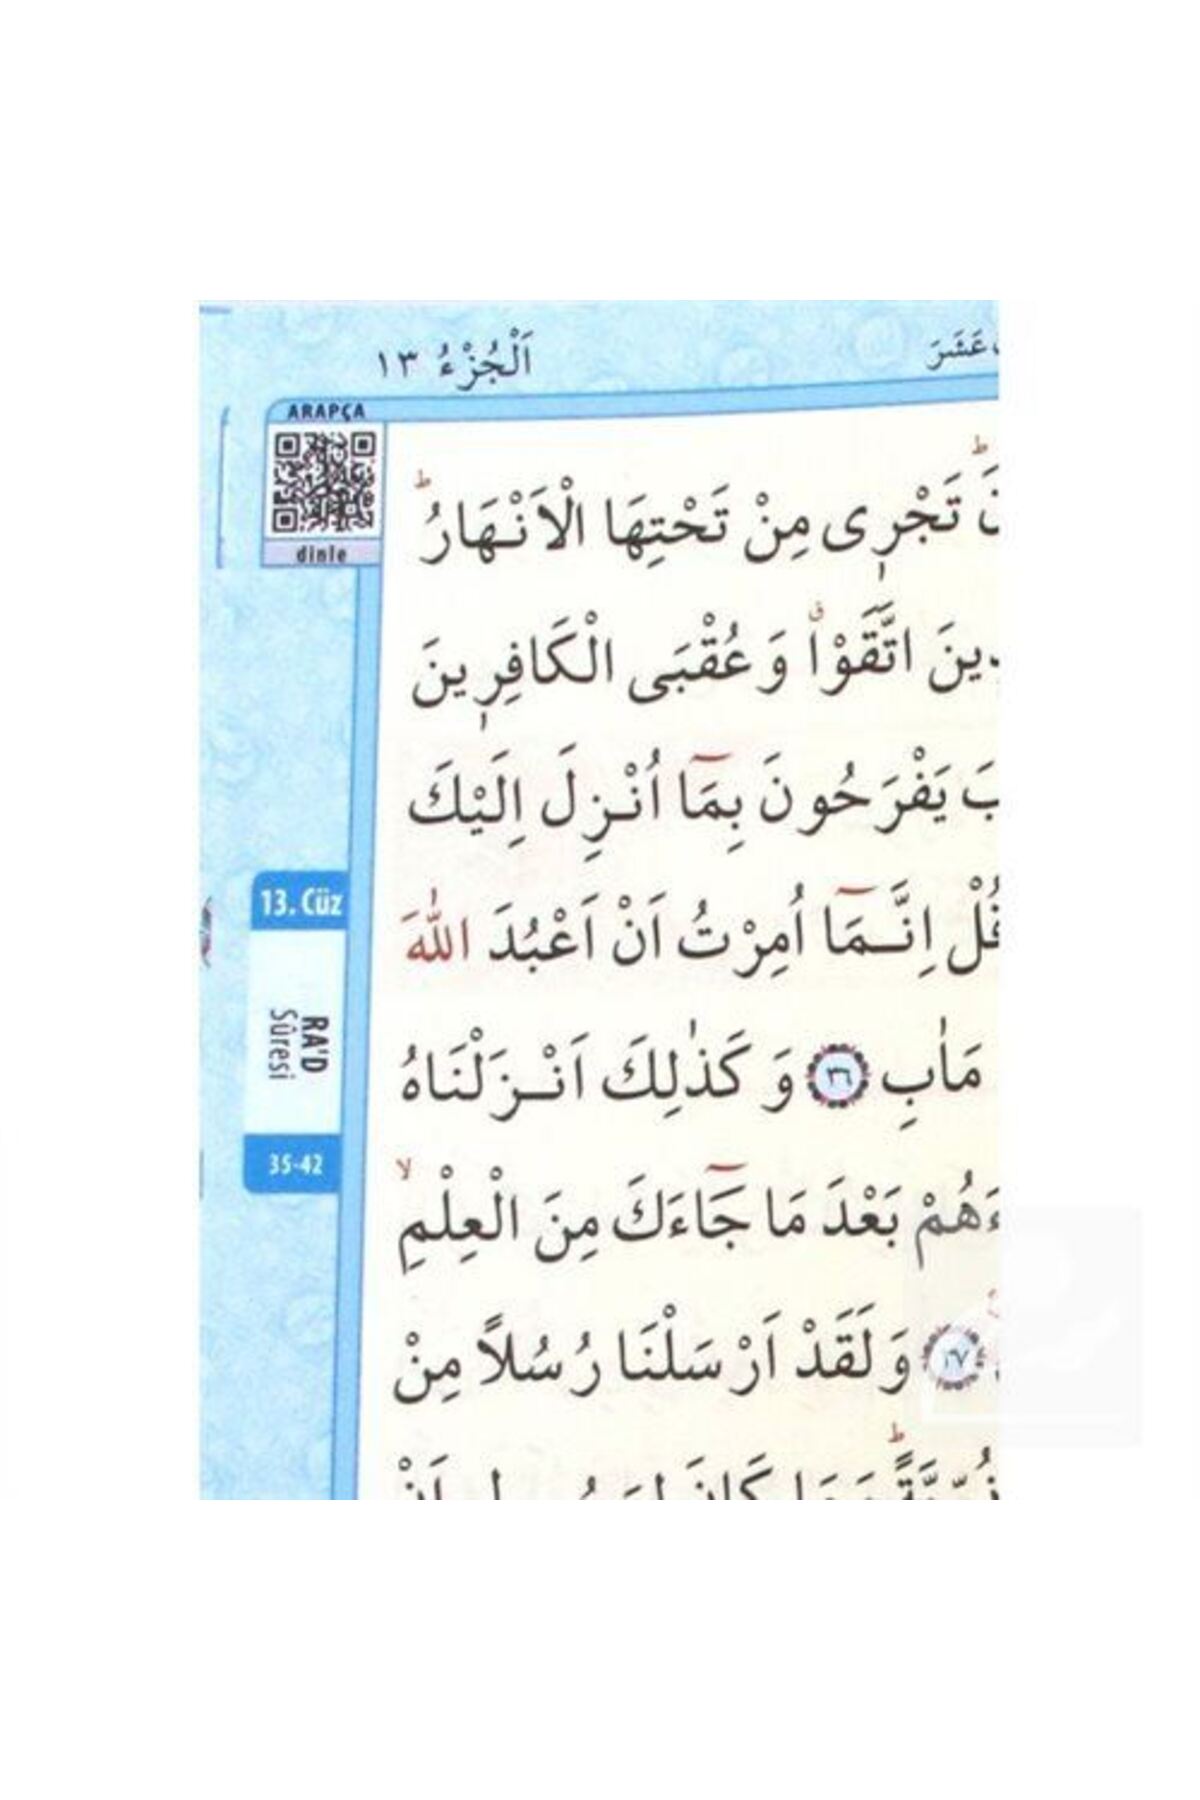 اَلْجُزْءُ ١٣
عَشَرَ
ARAPÇA
dinle
تَجْر۪ى مِنْ تَحْتِهَا الْاَنْهَارُۜ
اتَّقَوْاۗ وَعُقْبَى الْكَافِر۪ينَ
يَفْرَحُونَ بِمَٓا اُنْزِلَ اِلَيْكَ
قُلْ اِنَّمَٓا اُمِرْتُ اَنْ اَعْبُدَ اللّٰهَ
مَاٰبِ ٣٦ وَكَذٰلِكَ اَنْزَلْنَاهُ
بَعْدَ مَا جَٓاءَكَ مِنَ الْعِلْمِۙ
٣٧ وَلَقَدْ اَرْسَلْنَا رُسُلًا مِنْ
13. Cüz
RA'D
Sûresi
35-42